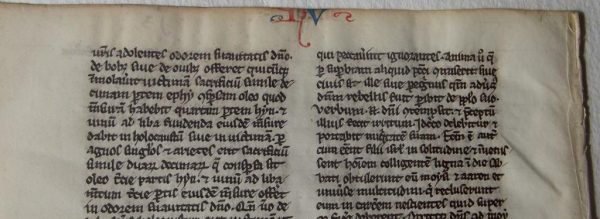 N V
uͬis adolentes odorem suauitatis dño.
de bobꝫ siue de ouibꝫ offeret quicūqꝫ
īmolauerit uictimam sacrificiū simile de
cimam ꝑtem ephy ꝯsꝑsam oleo quod
mēsurā habebit quartam ꝑtem hyn. ⁊
uinū ad liba fundenda eiusdē mēsure
dabit in holocaustū siue in uictimam. ꝑ
agnos singlos ⁊ arietes erit sacrificiū
simile duarꝝ decimarꝝ q̄ ꝯsꝑsa sit
oleo t̄cie partis hyn. ⁊ uinū ad liba
mētum t̄cie ꝑtis eiusdē mēsure offet̄
in odorem suauitatis dño. Qn̄ uo de
qui peccauint ignorantes. Anima ū q̄
ꝑ suꝑbiam aliquid pecc̄i ꝯmiserit siue
ciuis sit ille siue peregnus qm̄ adūs
dn̄m rebellis fuit ꝑibit de ppl̄o suo
Verbum .n. dn̄i ꝯtempsit ⁊ p̄ceptū
illius fecit irritum. Idcō delebitur ⁊
portabit iniq̄tatē suam. Fc̄m ē aut̄
cum eēnt filii isrl̄ in solitudine ⁊ īuenis
sent hoīem colligentē ligna ī die sab
bati obtulerunt eū moysi ⁊ aaron ⁊
uniuse multitudini. q̄ recluserunt
eum in carcerem nescientes quid suꝑ